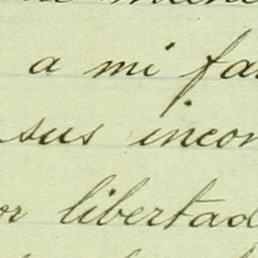 a mi fa
sus incon
or libertad